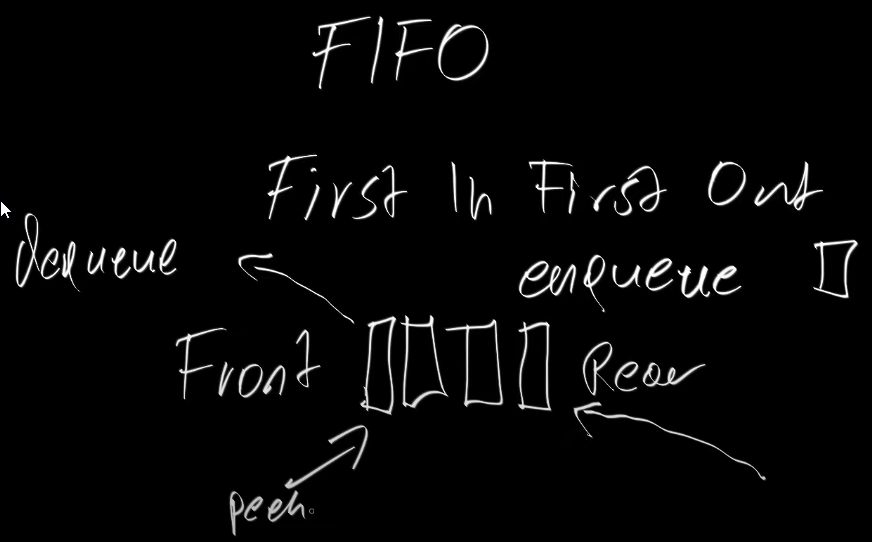 FIFO
First In First Out
dequeue
enqueue
Front
Rear
peek